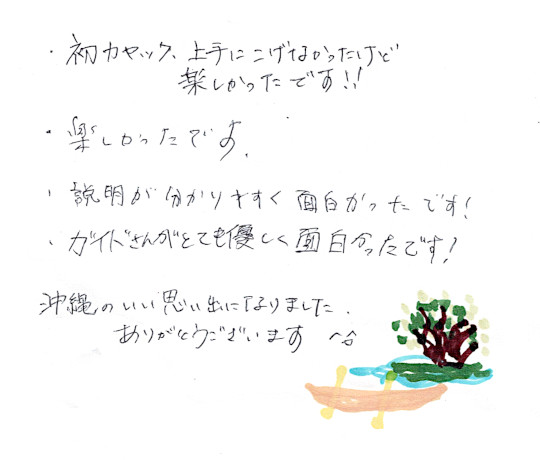 ・初カヤック、上手にこげなかったけど
楽しかったです!!
・楽しかったです。
・説明が分かりやすく面白かったです!
・ガイドさんがとても優しく面白かったです!
沖縄のいい思い出になりました.
ありがとうございます ^^